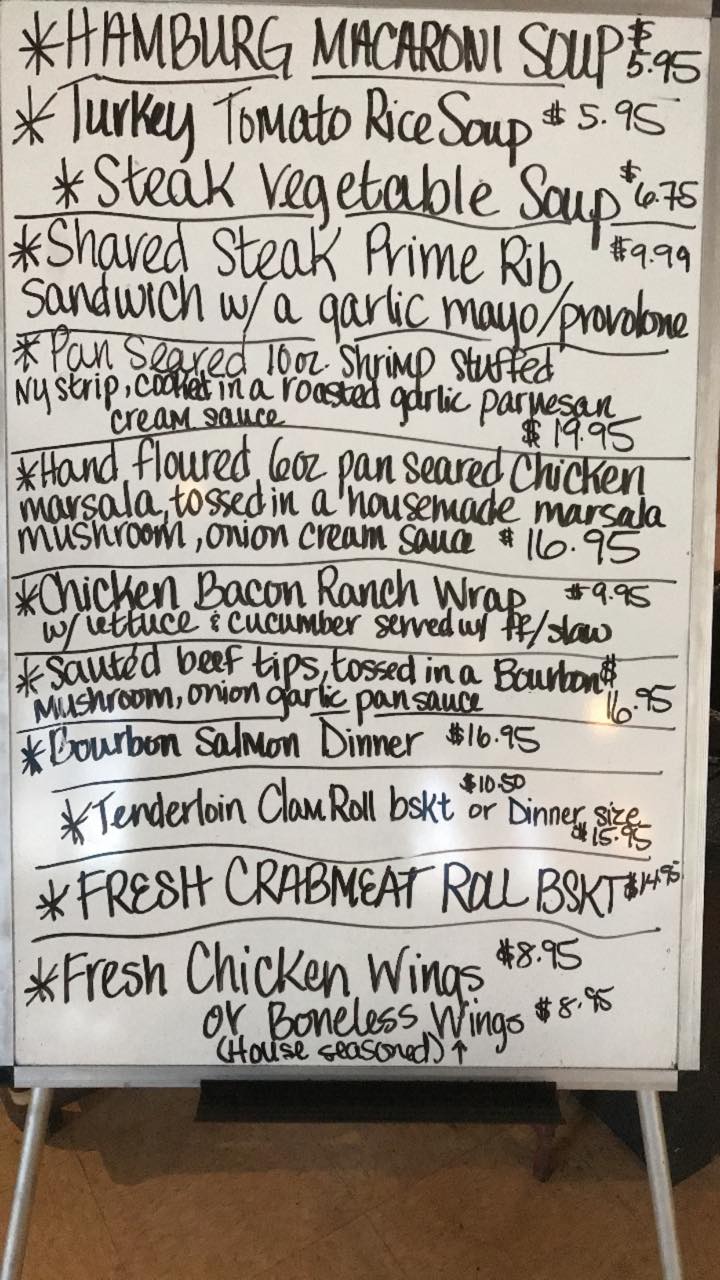 *HAMBURG MACARONI SOUP $5.95
*Turkey Tomato Rice Soup $5.95
*Steak Vegetable Soup $6.75
*Shaved Steak Prime Rib $9.99
Sandwich w/ a garlic mayo/provolone
*Pan Seared 10oz. Shrimp Stuffed
NY strip, cooked in a roasted garlic parmesan
cream sauce
$19.95
*Hand floured 6oz pan seared Chicken
marsala, tossed in a housemade marsala
mushroom, onion cream sauce $16.95
*Chicken Bacon Ranch Wrap $9.95
w/ lettuce & cucumber served w/ ff/slaw
*Sautéd beef tips, tossed in a Bourbon $16.95
Mushroom, onion garlic pan sauce
*Bourbon Salmon Dinner $16.95
*Tenderloin Clam Roll bskt $10.50 or Dinner size
$15.95
*FRESH CRABMEAT ROLL BSKT $14.95
*Fresh Chicken Wings $8.95
or Boneless Wings $8.95
(House seasoned) ↑